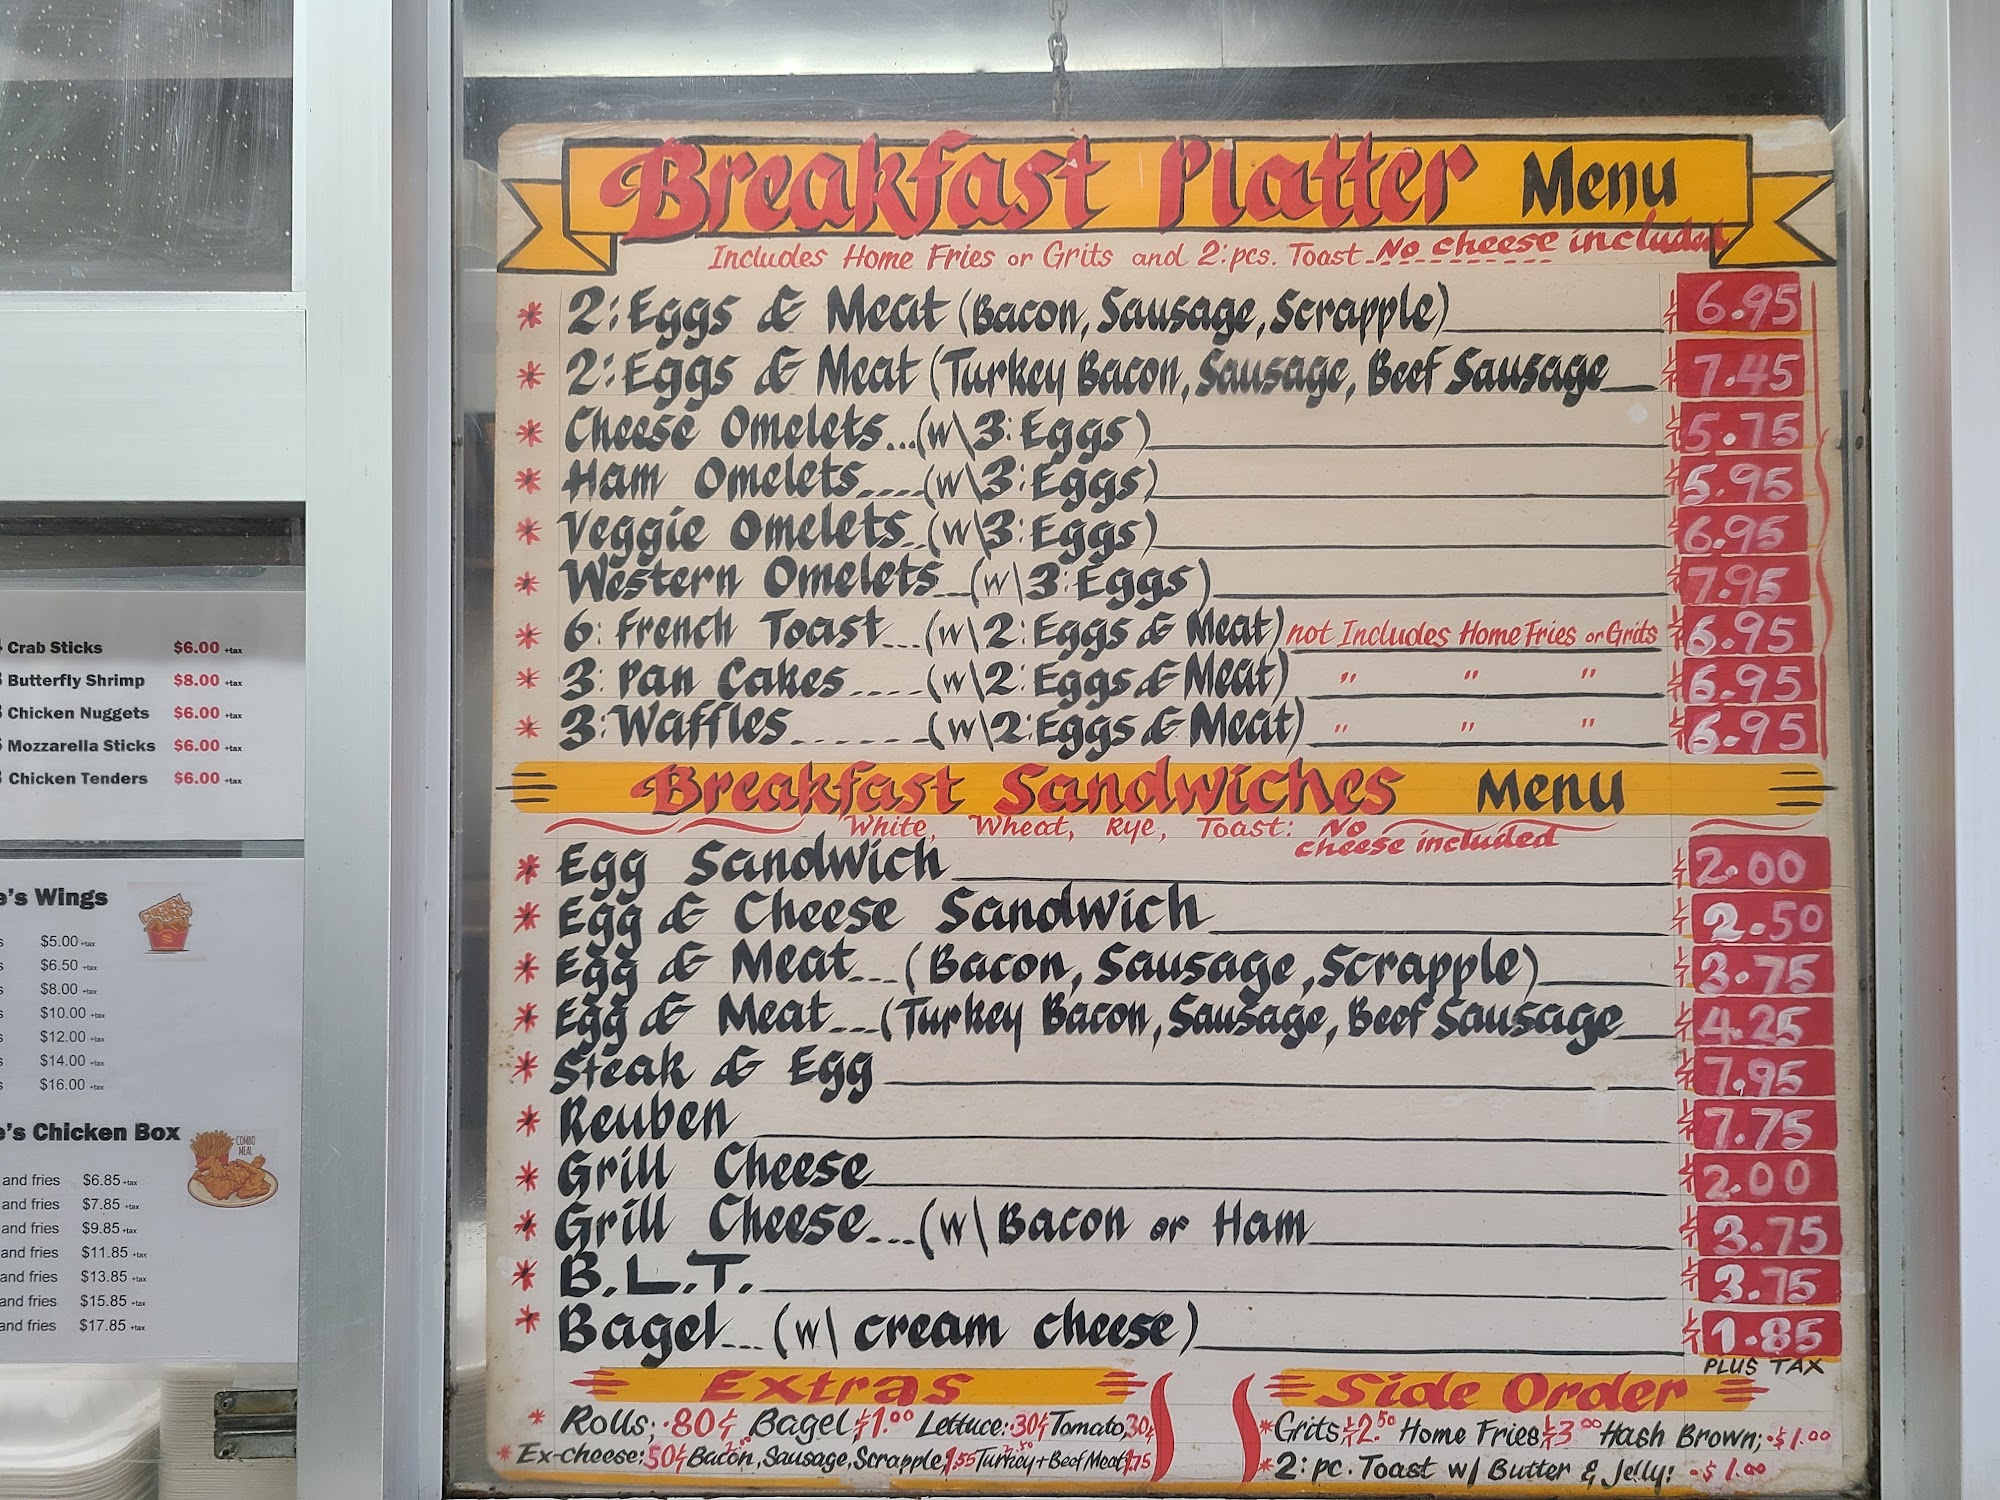 Breakfast Platter Menu
Includes Home Fries or Grits and 2:pcs. Toast No cheese included
* 2:Eggs & Meat (Bacon, Sausage, Scrapple) $ 6.95
* 2:Eggs & Meat (Turkey Bacon, Sausage, Beef Sausage $ 7.45
* Cheese Omelets...(w\3:Eggs) $ 5.75
* Ham Omelets....(w\3:Eggs) $ 5.95
* Veggie Omelets..(w\3:Eggs) $ 6.95
* Western Omelets...(w\3:Eggs) $ 7.95
* 6: French Toast...(w\2:Eggs & Meat) not Includes Home Fries or Grits $ 6.95
* 3: Pan Cakes....(w\2:Eggs & Meat) " " " $ 6.95
* 3:Waffles.......(w\2:Eggs & Meat) " " " $ 6.95
Breakfast Sandwiches Menu
White, Wheat, Rye, Toast: No cheese included
* Egg Sandwich $ 2.00
* Egg & Cheese Sandwich $ 2.50
* Egg & Meat...(Bacon, Sausage, Scrapple) $ 3.75
* Egg & Meat...(Turkey Bacon, Sausage, Beef Sausage $ 4.25
* Steak & Egg $ 7.95
* Reuben $ 7.75
* Grill Cheese $ 2.00
* Grill Cheese...(w\ Bacon or Ham $ 3.75
* B.L.T. $ 3.75
* Bagel...(w\ cream cheese) $ 1.85
PLUS TAX
Extras
* Rolls; .80¢ Bagel $1.00 Lettuce: .30¢ Tomato, 30¢
* Ex-cheese: 50¢ Bacon, Sausage, Scrapple, Turkey + Beef Meat
Side Order
* Grits $2.50 Home Fries $3.00 Hash Brown; $1.00
* 2: pc. Toast w/ Butter & Jelly: $1.00
Crab Sticks $6.00 +tax
Butterfly Shrimp $8.00 +tax
Chicken Nuggets $6.00 +tax
Mozzarella Sticks $6.00 +tax
Chicken Tenders $6.00 +tax
e's Wings
s $5.00 +tax
s $6.50 +tax
s $8.00 +tax
s $10.00 +tax
s $12.00 +tax
s $14.00 +tax
s $16.00 +tax
e's Chicken Box
COMBO
MEAL
and fries $6.85 +tax
and fries $7.85 +tax
and fries $9.85 +tax
and fries $11.85 +tax
and fries $13.85 +tax
and fries $15.85 +tax
and fries $17.85 +tax